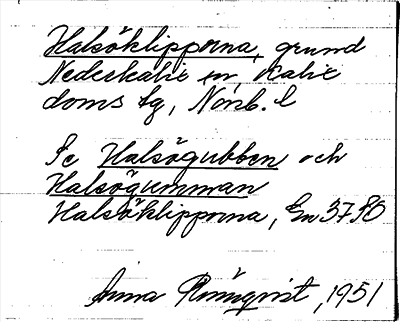 Halsöklipporna, grund
Nederkalix sn, Kalix
doms lg, Norrb. l
Se Halsögubben och
Halsögumman
Halsöklipporna, En 3790
Anna Rönnqvist, 1951